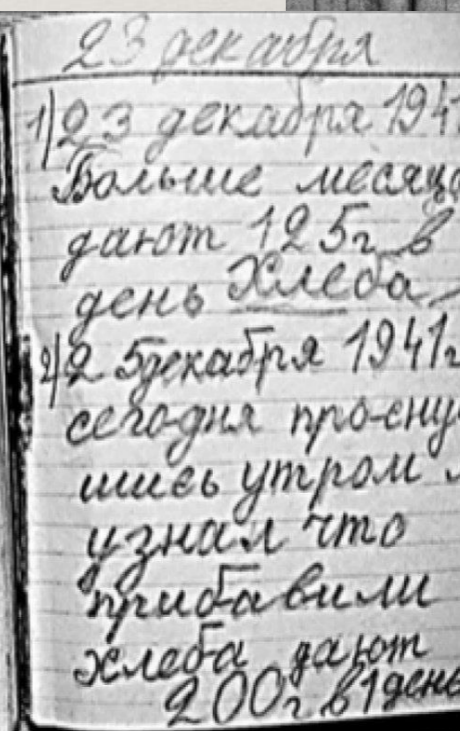 23 декабря
1) 23 декабря 1941
Больше месяца
дают 125г в
день Хлеба
2) 25 декабря 1941г
сегодня просну
шись утром
узнал что
прибавили
хлеба дают
200г в 1 день